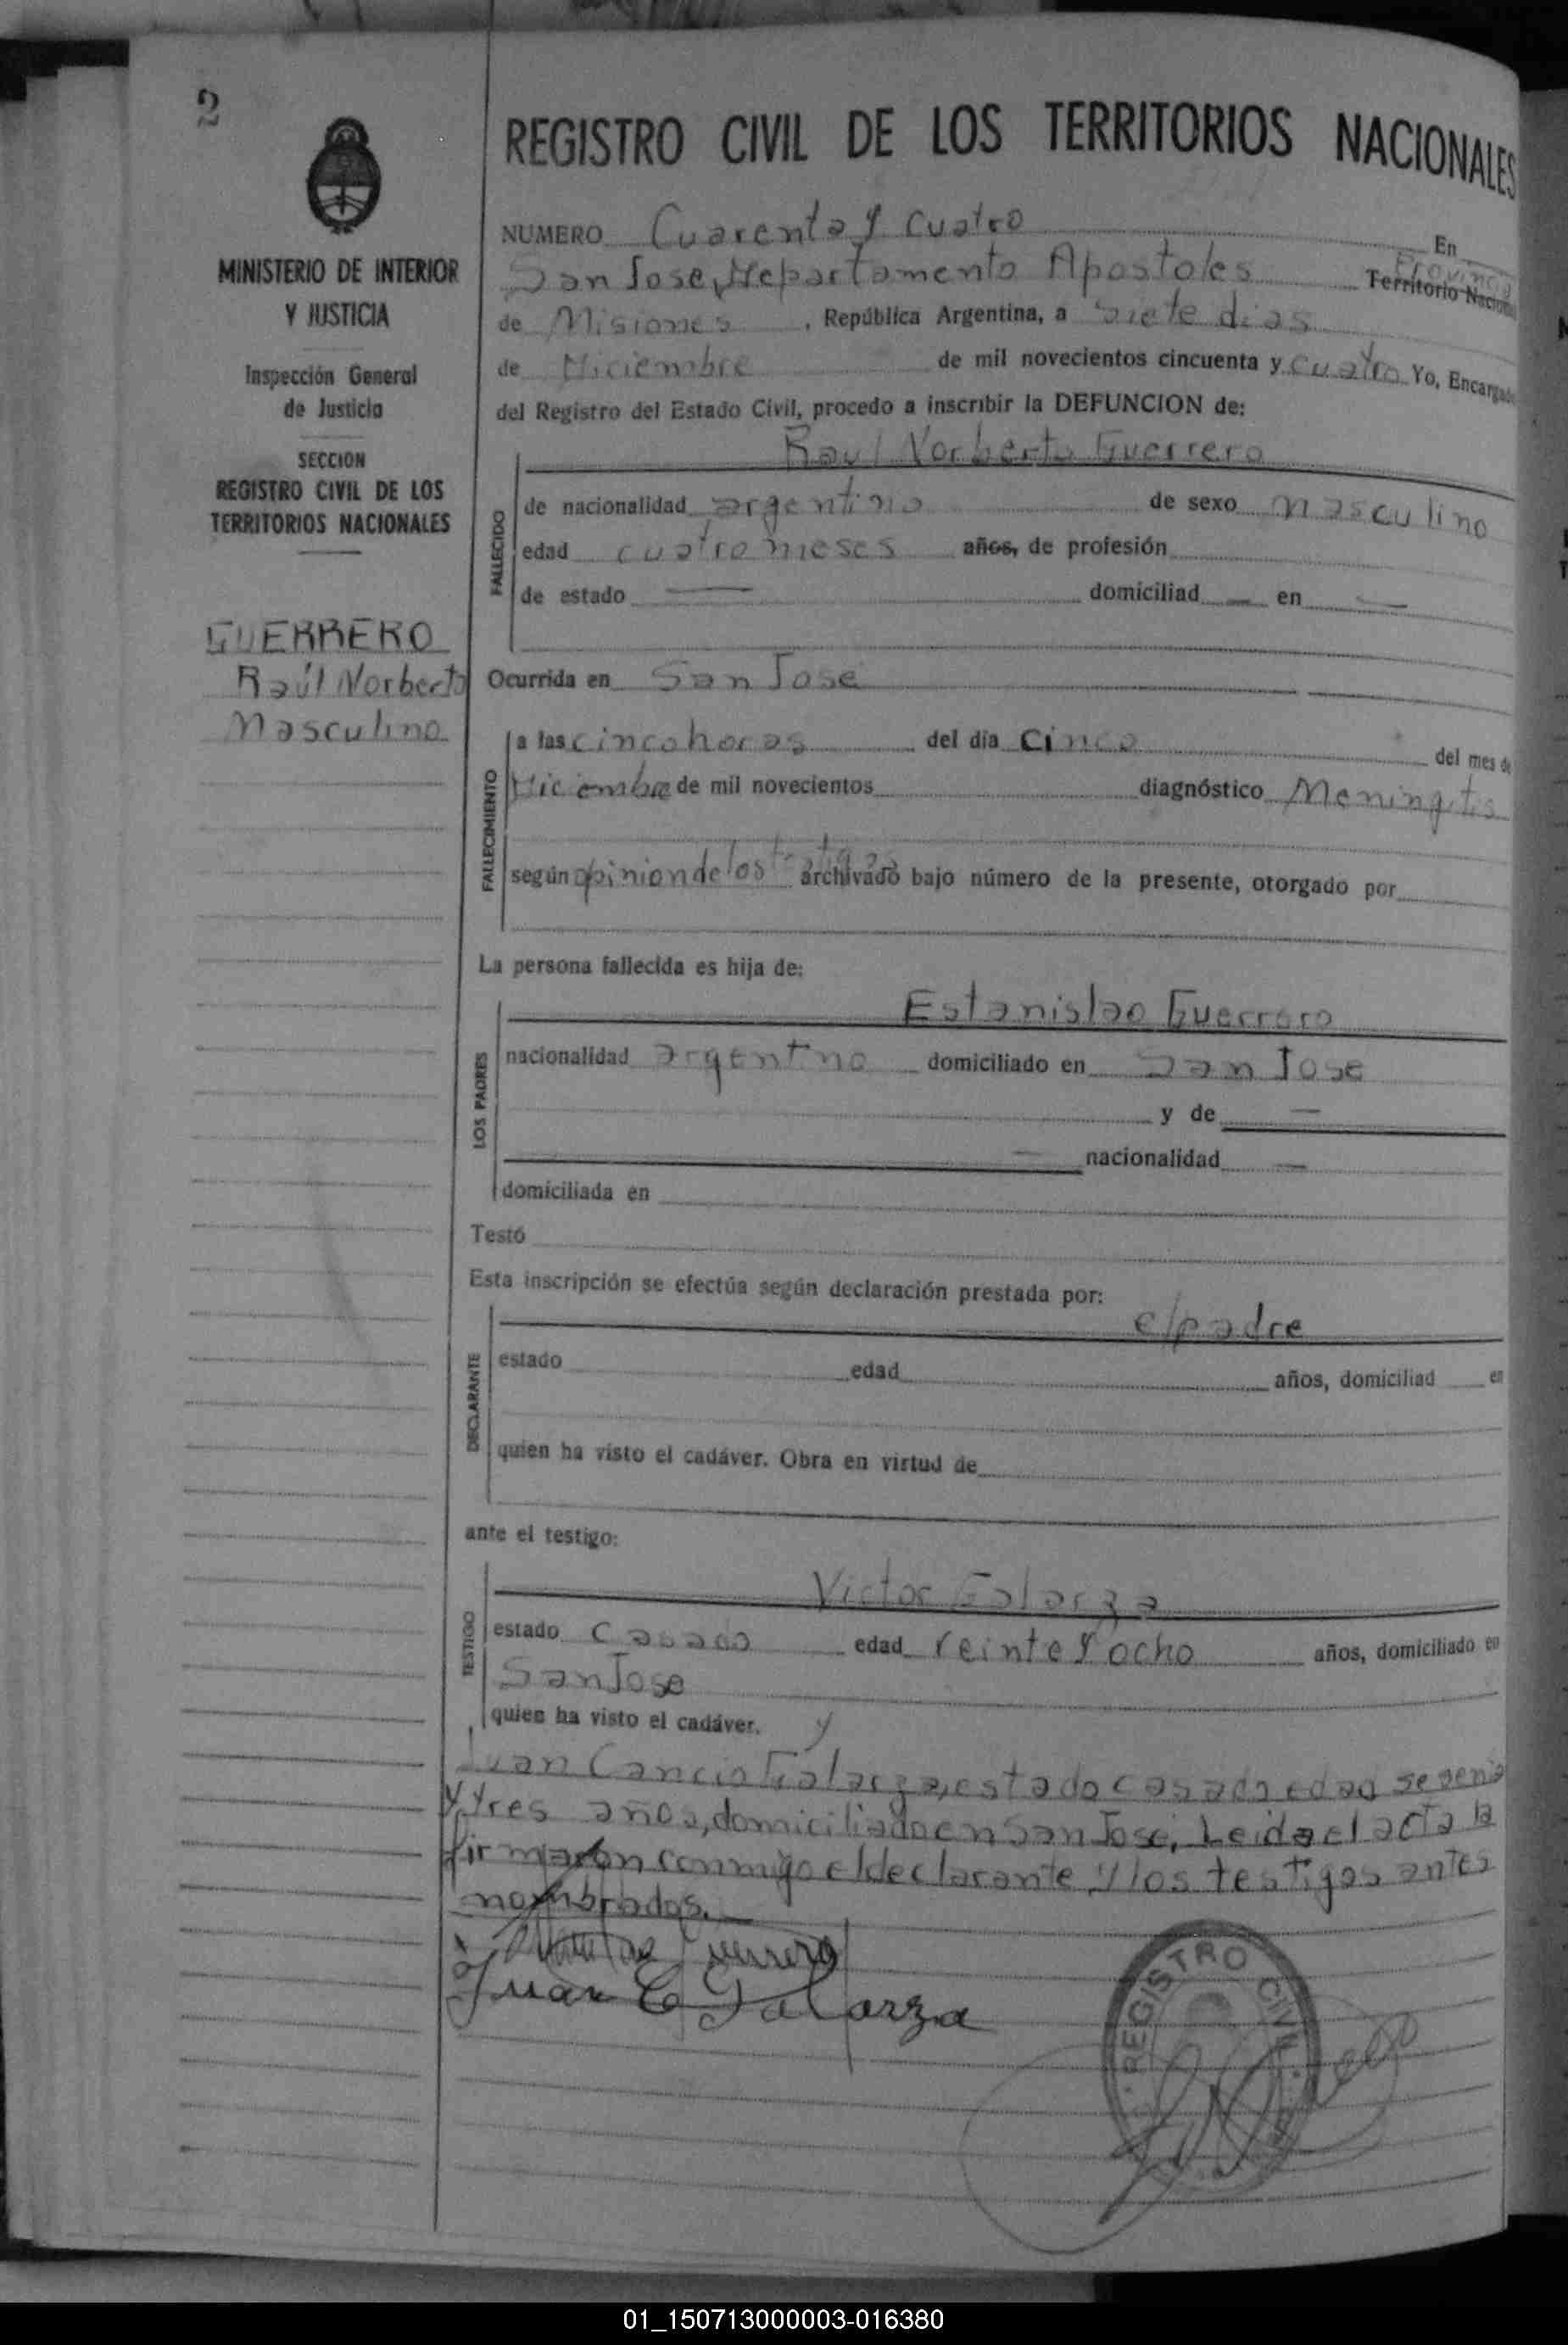 2
REGISTRO CIVIL DE LOS TERRITORIOS NACIONALES
MINISTERIO DE INTERIOR
Y JUSTICIA
Inspección General
de Justicia
SECCION
REGISTRO CIVIL DE LOS
TERRITORIOS NACIONALES
GUERRERO
Raúl Norberto
Masculino
NUMERO Cuarenta y cuatro En
San Jose, Departamento Apostoles Provincia Territorio Nacional
de Misiones, República Argentina, a siete dias
de Diciembre de mil novecientos cincuenta y cuatro Yo, Encargado
del Registro del Estado Civil, procedo a inscribir la DEFUNCION de:
Raul Norberto Guerrero
FALLECIDO
de nacionalidad argentino de sexo masculino
edad cuatro meses años, de profesión
de estado — domiciliad — en —
Ocurrida en San Jose
FALLECIMIENTO
a las cinco horas del día cinco del mes de
Diciembre de mil novecientos diagnóstico Meningitis
según opinion de los testigos archivado bajo número de la presente, otorgado por
La persona fallecida es hija de:
LOS PADRES
Estanislao Guerrero
nacionalidad argentino domiciliado en San Jose
y de —
— nacionalidad —
domiciliada en
Testó
Esta inscripción se efectúa según declaración prestada por:
DECLARANTE
el padre
estado edad años, domiciliad en
quien ha visto el cadáver. Obra en virtud de
ante el testigo:
TESTIGO
Victor Galarza
estado casado edad veinte y ocho años, domiciliado en
San Jose
quien ha visto el cadáver. y
Juan Cancio Galarza, estado casado edad sesenta
y tres años, domiciliado en San Jose, Leida el acta la
firmaron conmigo el declarante y los testigos antes
nombrados.
Guerrero
Juan C Galarza
REGISTRO CIVIL
01_150713000003-016380